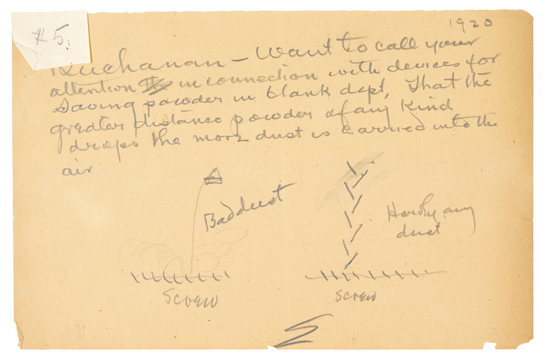 1920
#5.
Buchanan - Want to call your
attention in connection with devices for
Saving powder in blank dept, That the
greater distance powder of any kind
drops the more dust is carried into the
air
Bad dust
Hardly any
dust
Screw
Screw
E